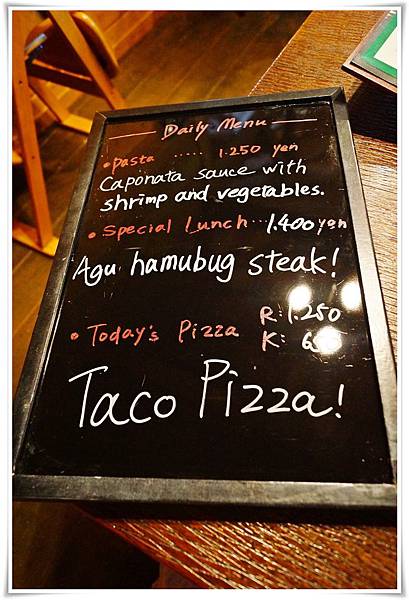 Daily Menu
• Pasta ..... 1.250 yen
Caponata sauce with
shrimp and vegetables.
• Special Lunch ... 1.400 yen
Agu hamubug steak!
• Today's Pizza R: 1.250
K:
Taco Pizza!